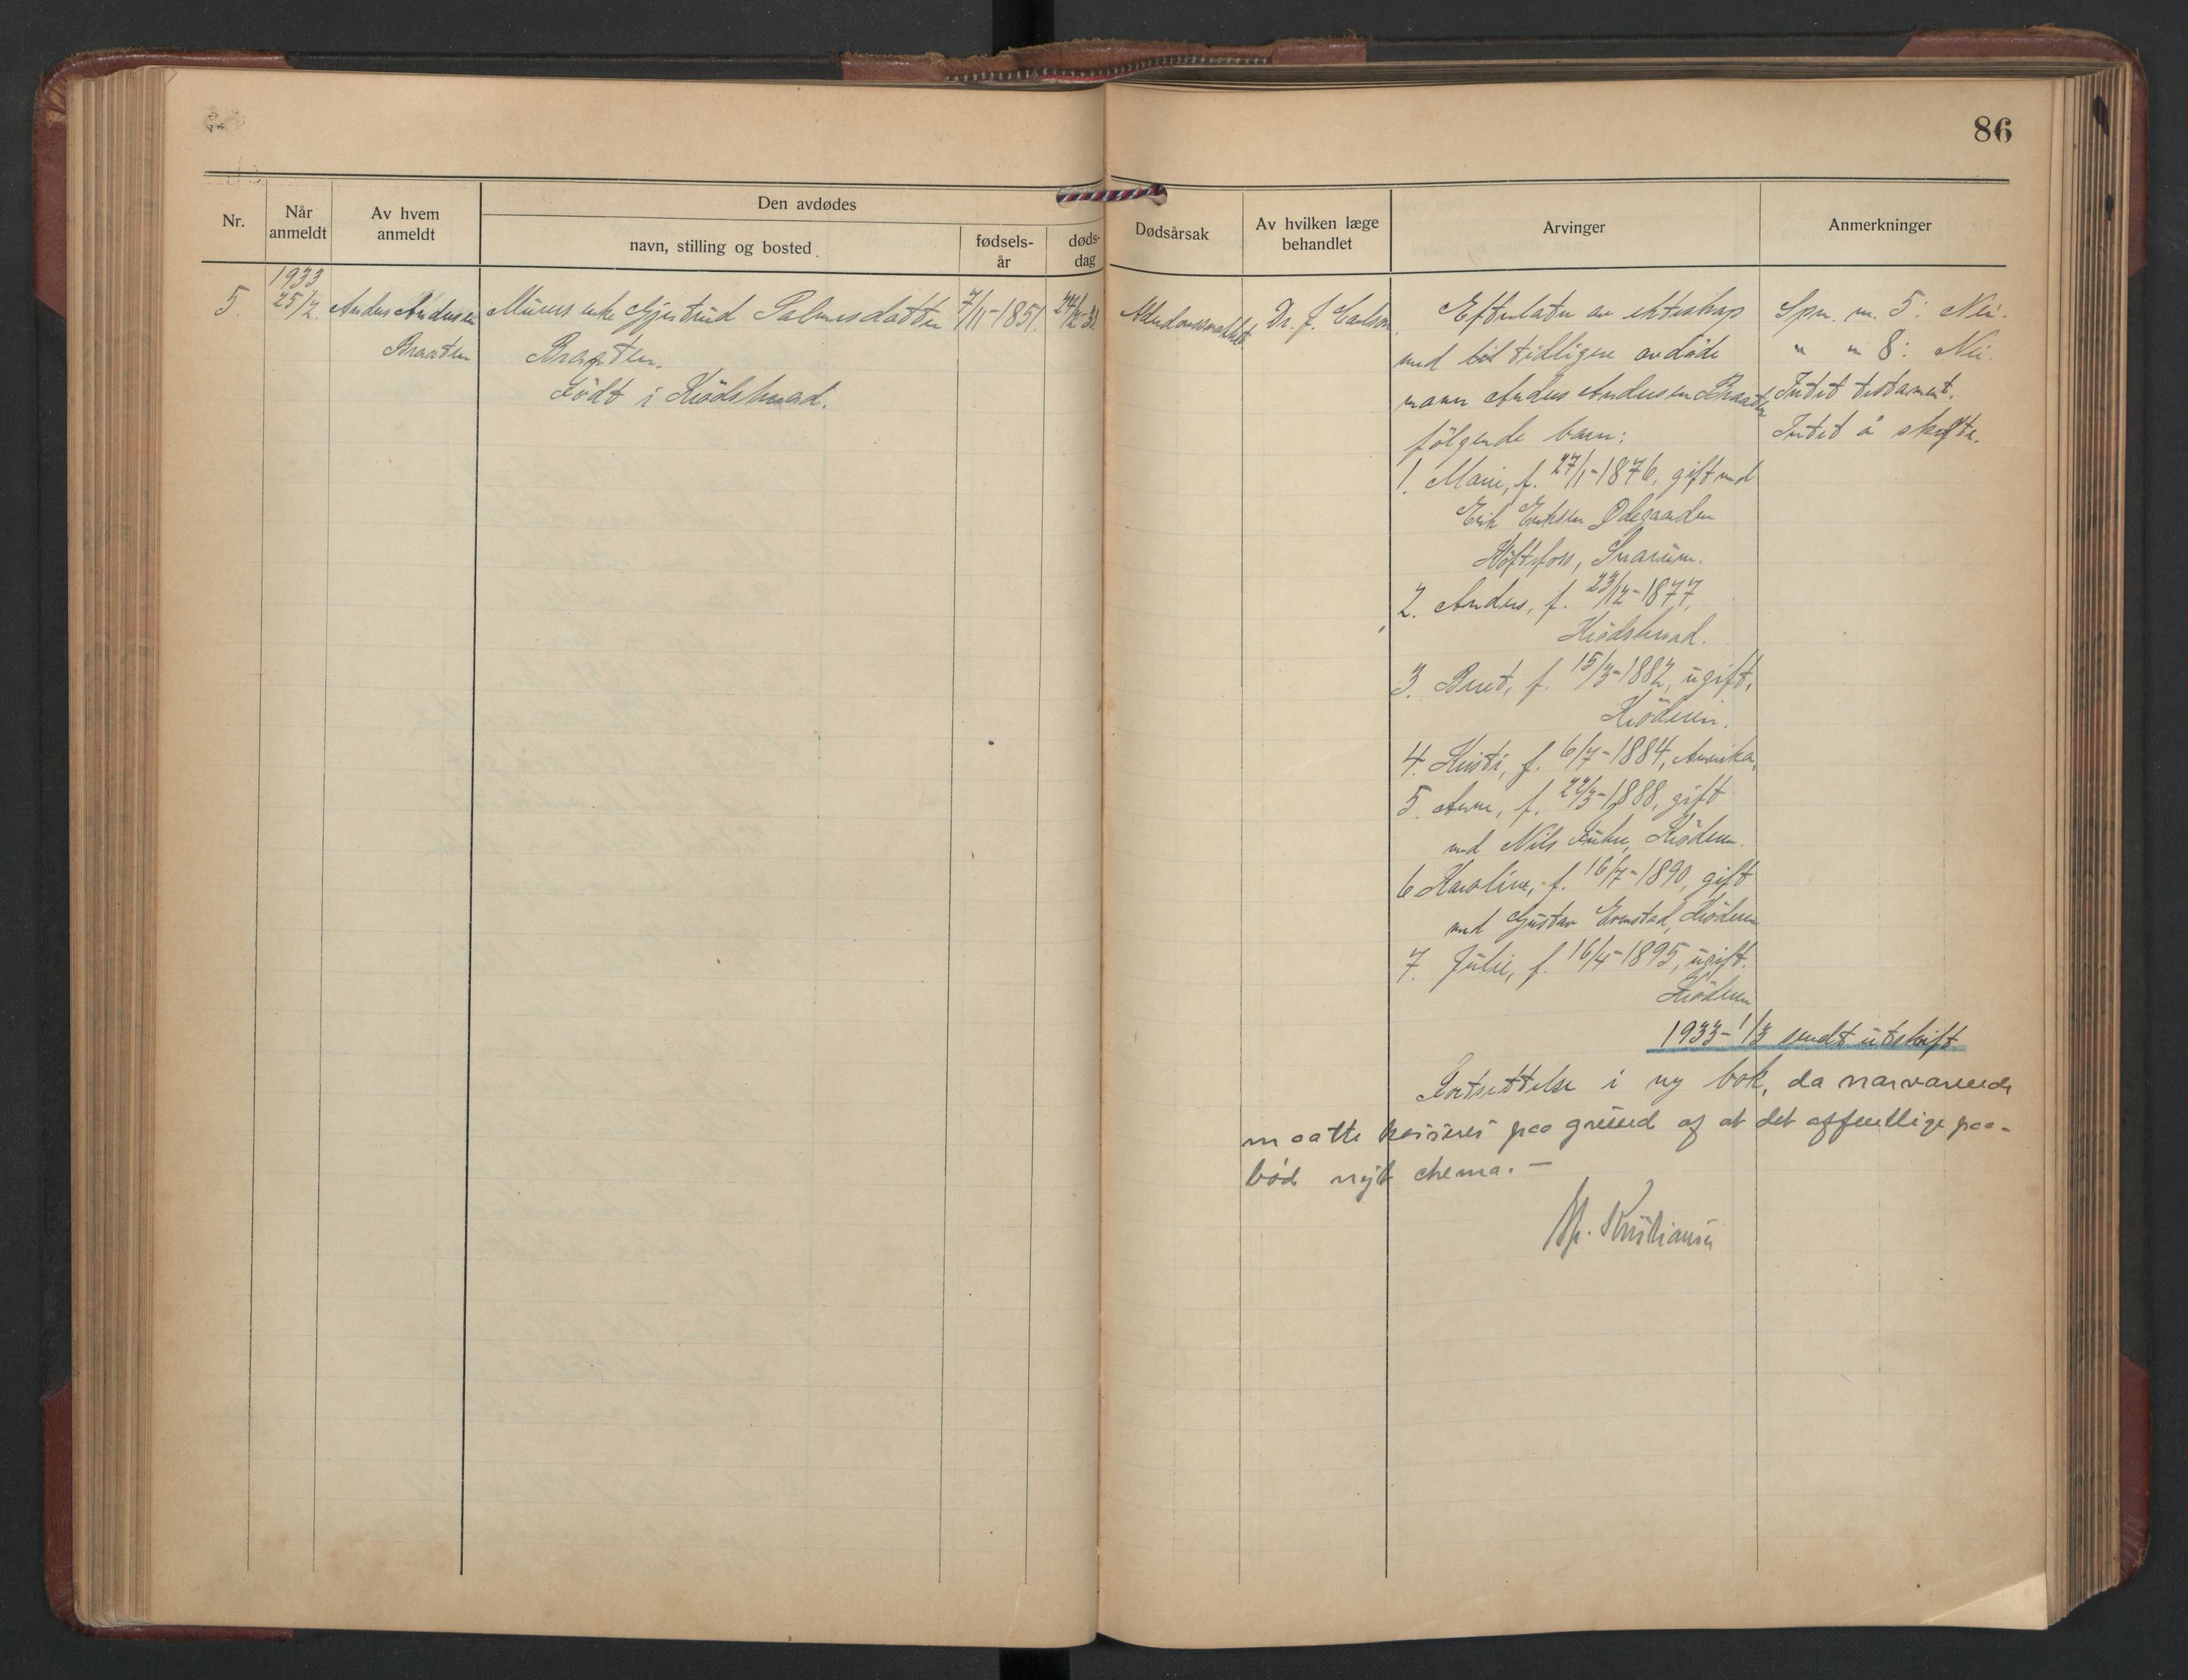 86
Nr.
Når anmeldt
Av hvem anmeldt
Den avdødes
navn, stilling og bosted.
fødsels-år
døds-dag
Dødsårsak
Av hvilken læge behandlet
Arvinger
Anmerkninger
1933
5. 25/2. Anders Andersen
Braaten
Murers enke Gjertrud Palmesdatter
Braaten.
Født i Krødsherad.
7/11-1851.
24/2-33
Alderdomssvakhet
Dr. J. Carlson
Efterlater av ekteskap
med til tidligere avdøde
mann Anders Andersen Braaten
følgende barn:
1. Marie, f. 27/1-1876, gift med
Erik Eriksen Ødegaarden
Kløftefoss, Snarum.
2. Anders, f. 23/12-1877,
Krødsherad.
3. Berit, f. 15/3-1882, ugift,
Krøderen.
4. Kristi, f. 6/7-1884, Amerika,
5. Anne, f. 22/3-1888, gift
med Nils Fuhre, Krøderen.
6 Karoline, f. 16/7-1890, gift
med Gustav Ernstad, Krøderen
7. Julie, f. 16/4-1895, ugift.
Krøderen
Spm. nr. 5: Nei.
" " 8: Nei.
Intet testament.
Intet å skifte.
1933-1/3 sendt utskrift
Fortsettelse i ny bok, da nærværende
maatte kasseres paa grund af at det offentlige paa-
bød nyt chema. —
Kristiansen